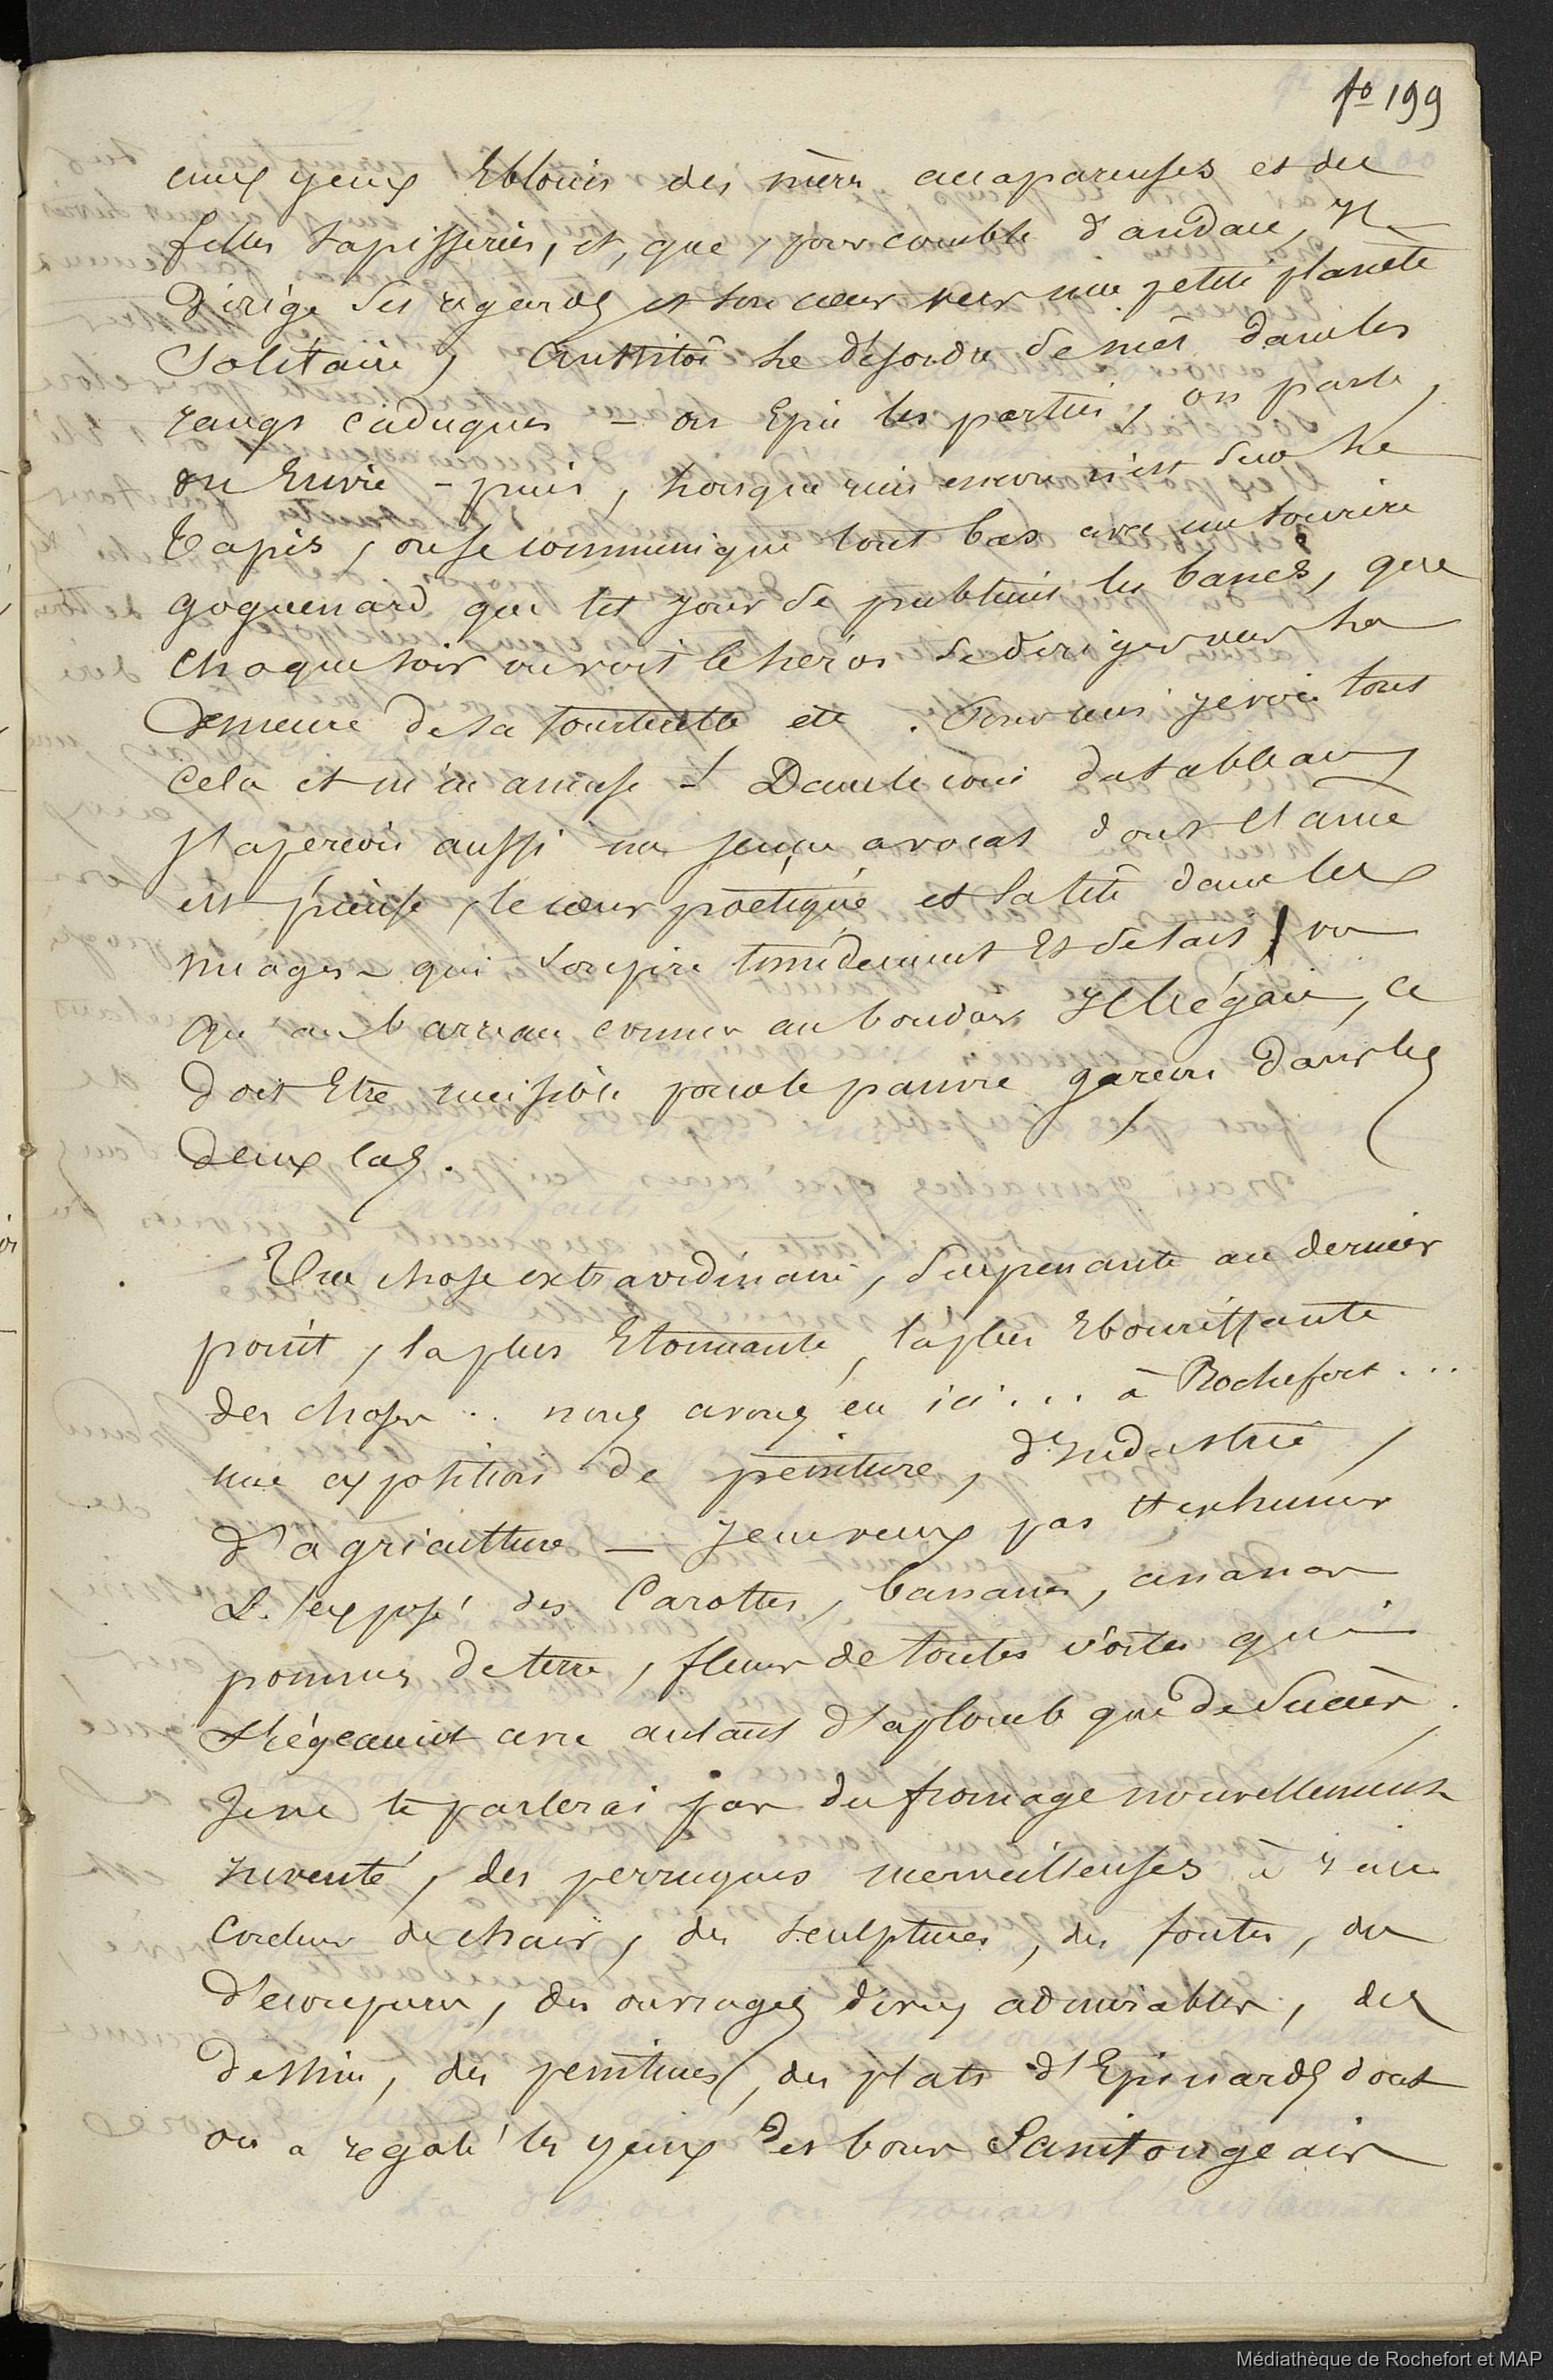 fo 199
aux yeux Eblouis des mères accapareuses et des
filles tapisseries, et, que, pour comble d'audace, Il
Dirige ses regards et son cœur vers une petite planète
Solitaire, Aussitôt le désordre se met dans les
rangs caduques – on Epie les parties, on parle,
on Envie – puis, lorsque rien encore n'est sur le
Tapis, on se communique tout bas avec un sourire
goguenard que tel jour se publient les bancs, que
chaque soir on voit le héros se diriger vers la
demeure de sa tourterelle etc. Pour moi je vois tout
cela et m'en amuse – Dans le coin du tableau,
J'aperçois aussi un jeune avocat dont l'âme
est pieuse, le cœur poétique et la tête dans les
nuages – qui soupire timidement Et se tait, vu
qu'au barreau comme au boudoir Il bégaie, ce
doit Etre nuisible pour le pauvre garçon dans les
deux cas.
Une chose extraordinaire, Surprenante au dernier
point, la plus Etonnante, la plus Ebouriffante
des choses .. nous avons eu ici ... à Rochefort ...
une exposition de peinture, d'Industrie,
d'agriculture — Je ne veux pas t'exhumer
L'exposé des Carottes, bananes, ananas
pommes de terre, fleurs de toutes sortes qui
siégeaient avec autant d'aplomb que de succès.
Je ne te parlerai pas du fromage nouvellement
Inventé, des perruques merveilleuses à raie
couleur de chair, des sculptures, des fontes, des
découpures, des ouvrages divers admirables, des
dessins, des peintures, des plats d'Epinards dont
on a régalé les yeux des bons Saintongeais
Médiathèque de Rochefort et MAP